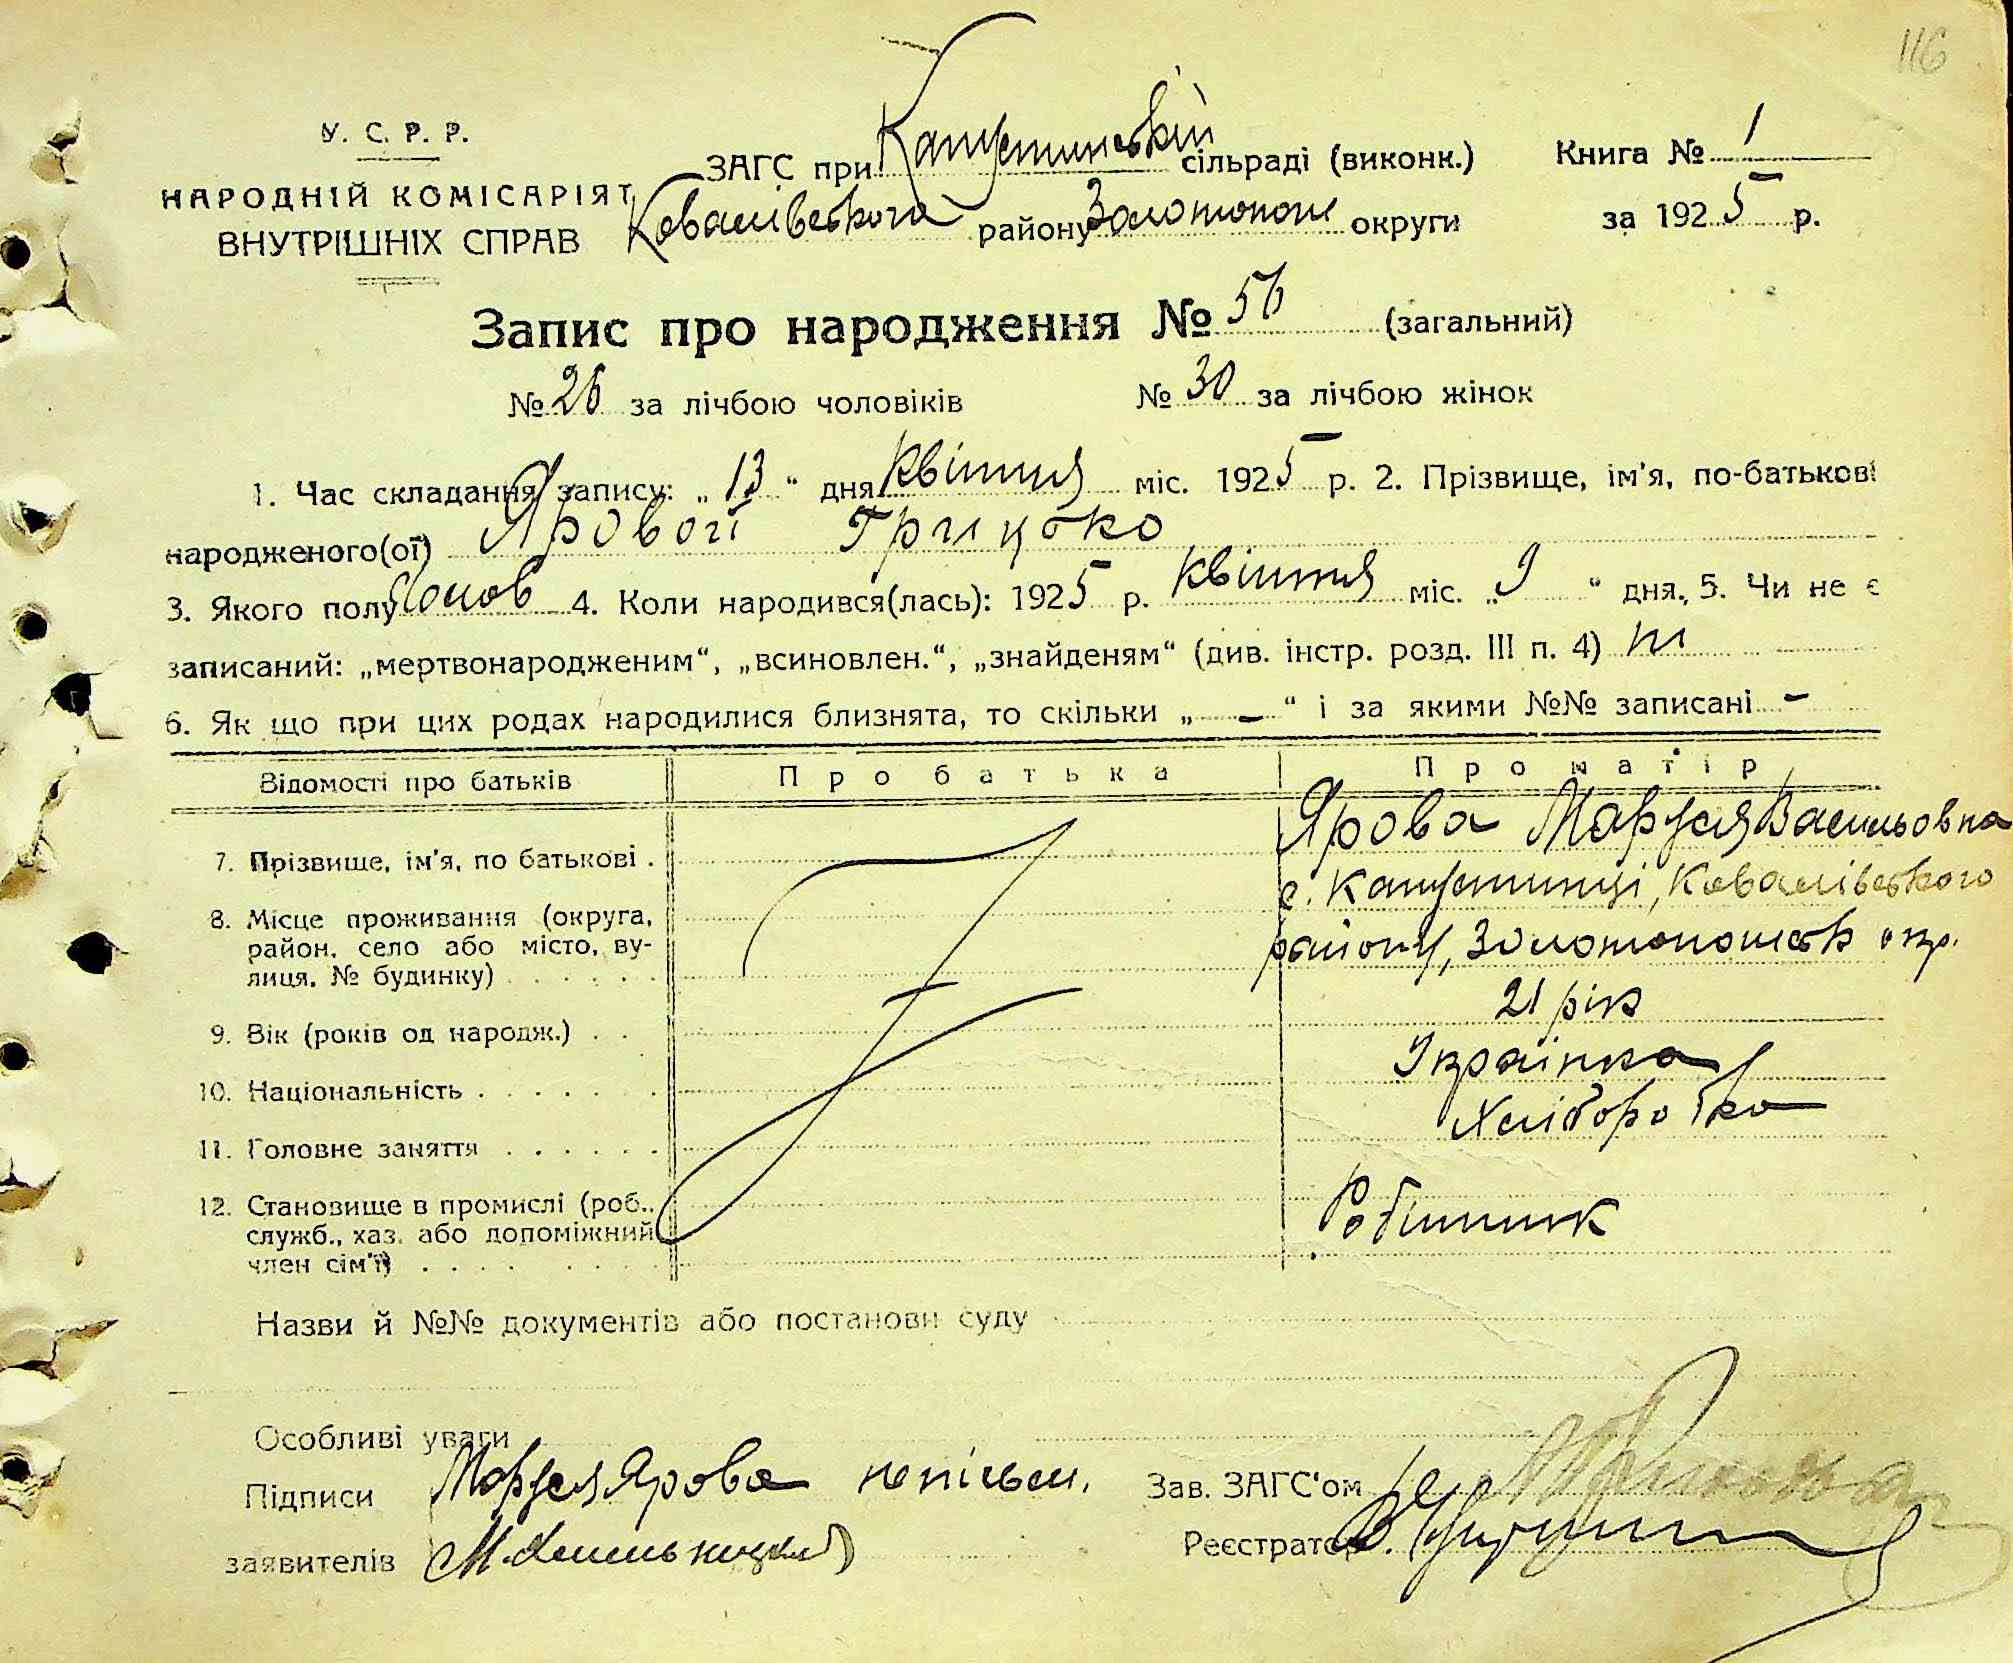 116
У. С. Р. Р.
НАРОДНІЙ КОМІСАРІЯТ
ВНУТРІШНІХ СПРАВ
ЗАГС при Капустинській сільраді (виконк.) Книга № 1
Ковалівського району Золотонош округи за 1925 р.
Запис про народження № 56 (загальний)
№ 26 за лічбою чоловіків № 30 за лічбою жінок
1. Час складання запису: „ 13 “ дня квітня міс. 1925 р. 2. Прізвище, ім'я, по-батькові
народженого(ої) Яровой Грицько
3. Якого полу 4. Коли народився(лась): 1925 р. квітня міс. „ 9 “ дня. 5. Чи не є
записаний: „мертвонародженим“, „всиновлен.“, „знайденям“ (див. інстр. розд. III п. 4) ні
6. Як що при цих родах народилися близнята, то скільки „ – “ і за якими №№ записані –
Відомості про батьків Про батька Про матір
7. Прізвище, ім'я, по батькові . Ярова Маруся Васильовна
8. Місце проживання (округа, район, село або місто, вулиця, № будинку) с. Капустинці, Ковалівського
району, Золотоношськ окр.
9. Вік (років од народж.) 21 рік
10. Національність Українка
11. Головне заняття Хліборобка
12. Становище в промислі (роб., служб., хаз. або допоміжний член сім'ї) Робітник
Назви й №№ документів або постанови суду
Особливі уваги
Підписи Маруся Ярова неписьм. Зав. ЗАГС'ом
заявителів Реєстратор